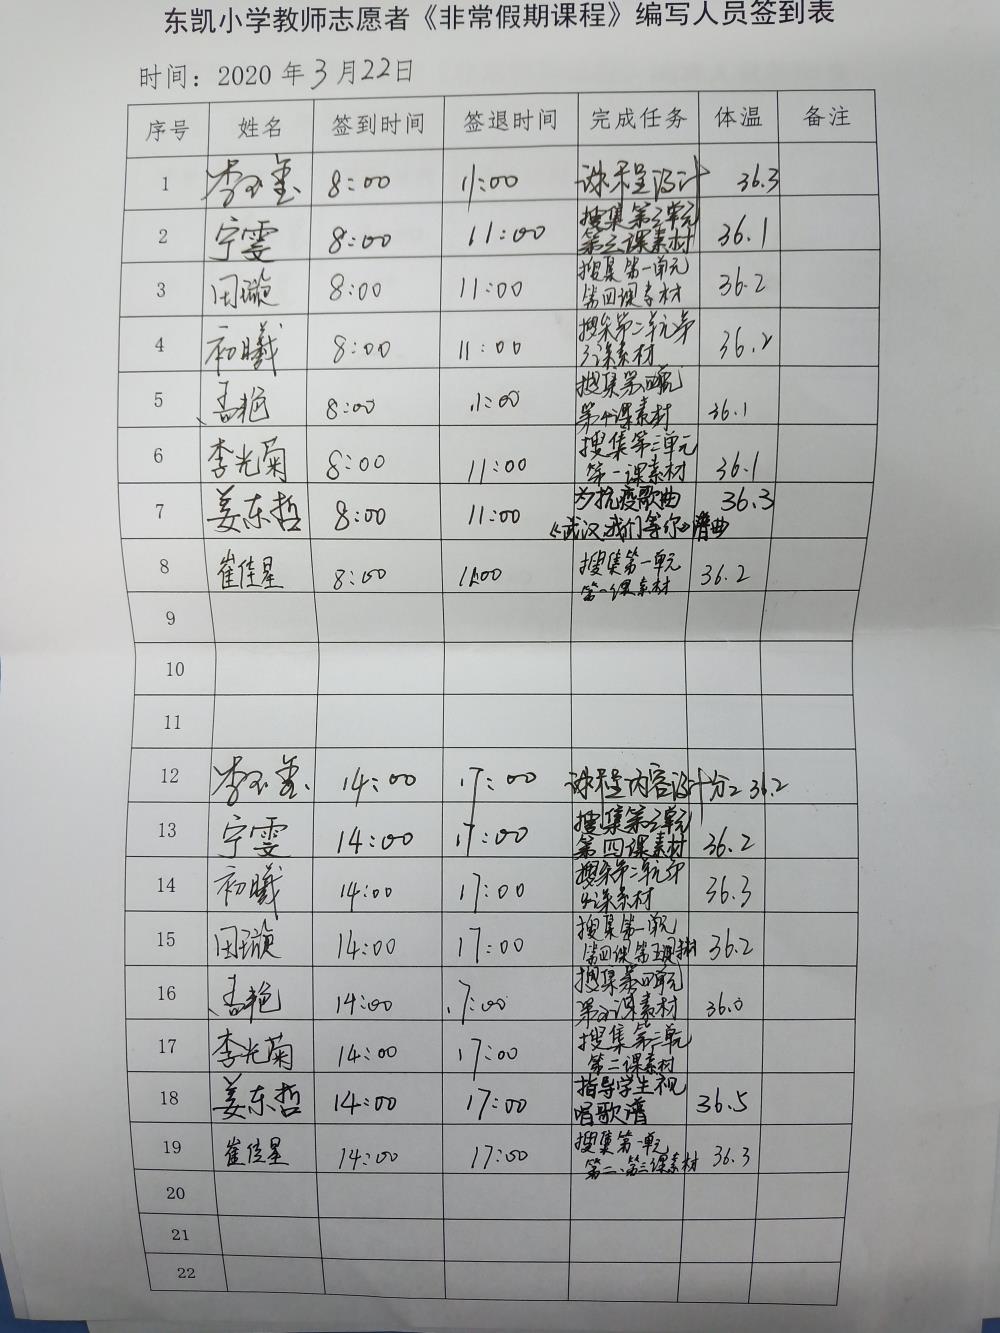 东凯小学教师志愿者《非常假期课程》编写人员签到表
时间：2020年3月22日
序号 姓名 签到时间 签退时间 完成任务 体温 备注
1 8:00 11:00 课程设计 36.3
2 宁雯 8:00 11:00 搜集第三单元
第三课素材 36.1
3 田璇 8:00 11:00 搜集第一单元
第四课素材 36.2
4 初曦 8:00 11:00 搜集第二单元第
3课素材 36.2
5 孟艳 8:00 11:00 搜集第四单元
第4课素材 36.1
6 李光菊 8:00 11:00 搜集第三单元
第一课素材 36.1
7 姜东哲 8:00 11:00 为抗疫歌曲
《武汉,我们等你》谱曲 36.3
8 崔佳星 8:00 11:00 搜集第一单元
第一课素材 36.2
9
10
11
12 14:00 17:00 课程内容设计分工 36.2
13 宁雯 14:00 17:00 搜集第三单元
第四课素材 36.2
14 初曦 14:00 17:00 搜集第二单元第
课素材 36.3
15 田璇 14:00 17:00 搜集第一单元
第四课第五课素材 36.2
16 孟艳 14:00 17:00 搜集第四单元
课素材 36.0
17 李光菊 14:00 17:00 搜集第三单元
第二课素材
18 姜东哲 14:00 17:00 指导学生视
唱歌谱 36.5
19 崔佳星 14:00 17:00 搜集第一单元
第二、第三课素材 36.3
20
21
22